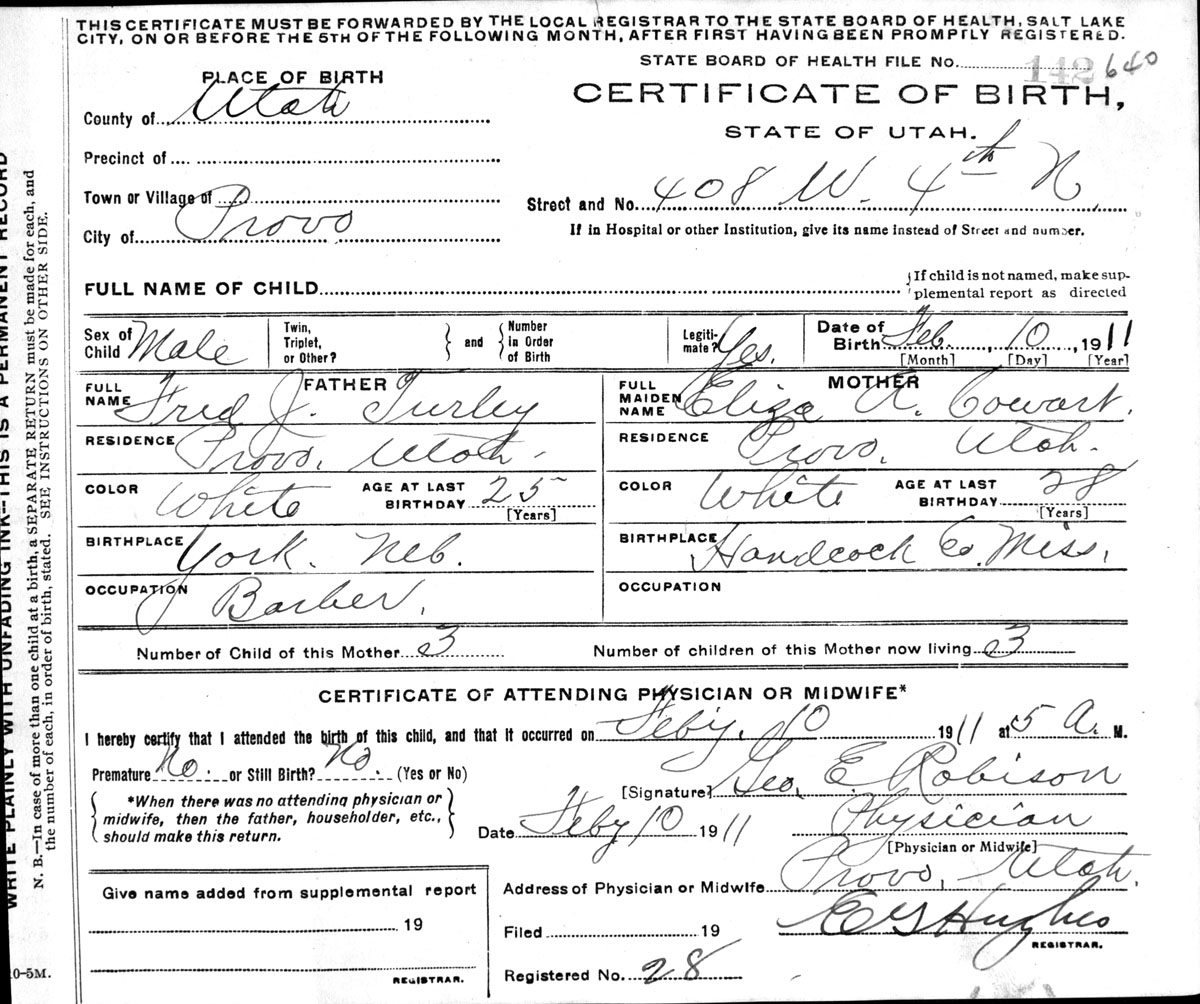 THIS CERTIFICATE MUST BE FORWARDED BY THE LOCAL REGISTRAR TO THE STATE BOARD OF HEALTH, SALT LAKE
CITY, ON OR BEFORE THE 5TH OF THE FOLLOWING MONTH, AFTER FIRST HAVING BEEN PROMPTLY REGISTERED.
STATE BOARD OF HEALTH FILE No. 142 640
PLACE OF BIRTH
CERTIFICATE OF BIRTH,
STATE OF UTAH.
County of Utah
Precinct of
Town or Village of
City of Provo
Street and No. 408 W. 4th N
If in Hospital or other Institution, give its name instead of Street and number.
FULL NAME OF CHILD
{If child is not named, make sup-
plemental report as directed
Sex of Child Male
Twin, Triplet, or Other? } and { Number in Order of Birth
Legiti-mate? Yes.
Date of Birth Feb. 10, 1911
[Month] [Day] [Year]
FATHER
FULL NAME Fred J. Turley
RESIDENCE Provo, Utah.
COLOR White AGE AT LAST BIRTHDAY 25
[Years]
BIRTHPLACE York. Neb.
OCCUPATION Barber.
MOTHER
FULL MAIDEN NAME Eliza A. Cowart.
RESIDENCE Provo, Utah.
COLOR White AGE AT LAST BIRTHDAY 28
[Years]
BIRTHPLACE Handcock Co. Miss.
OCCUPATION
Number of Child of this Mother 3 Number of children of this Mother now living 3
CERTIFICATE OF ATTENDING PHYSICIAN OR MIDWIFE*
I hereby certify that I attended the birth of this child, and that it occurred on Feby. 10 1911 at 5 A. M.
Premature No. or Still Birth? No. (Yes or No)
*When there was no attending physician or
midwife, then the father, householder, etc.,
should make this return.
[Signature] Geo. E. Robison
Date Feby 10 1911 Physician
[Physician or Midwife]
Address of Physician or Midwife Provo, Utah.
Give name added from supplemental report
19
REGISTRAR.
Filed 19 E G Hughes
REGISTRAR.
Registered No. 28
WRITE PLAINLY WITH UNFADING INK--THIS IS A PERMANENT RECORD
N. B.—In case of more than one child at a birth, a SEPARATE RETURN must be made for each, and
the number of each, in order of birth, stated. SEE INSTRUCTIONS ON OTHER SIDE.
0-5M.